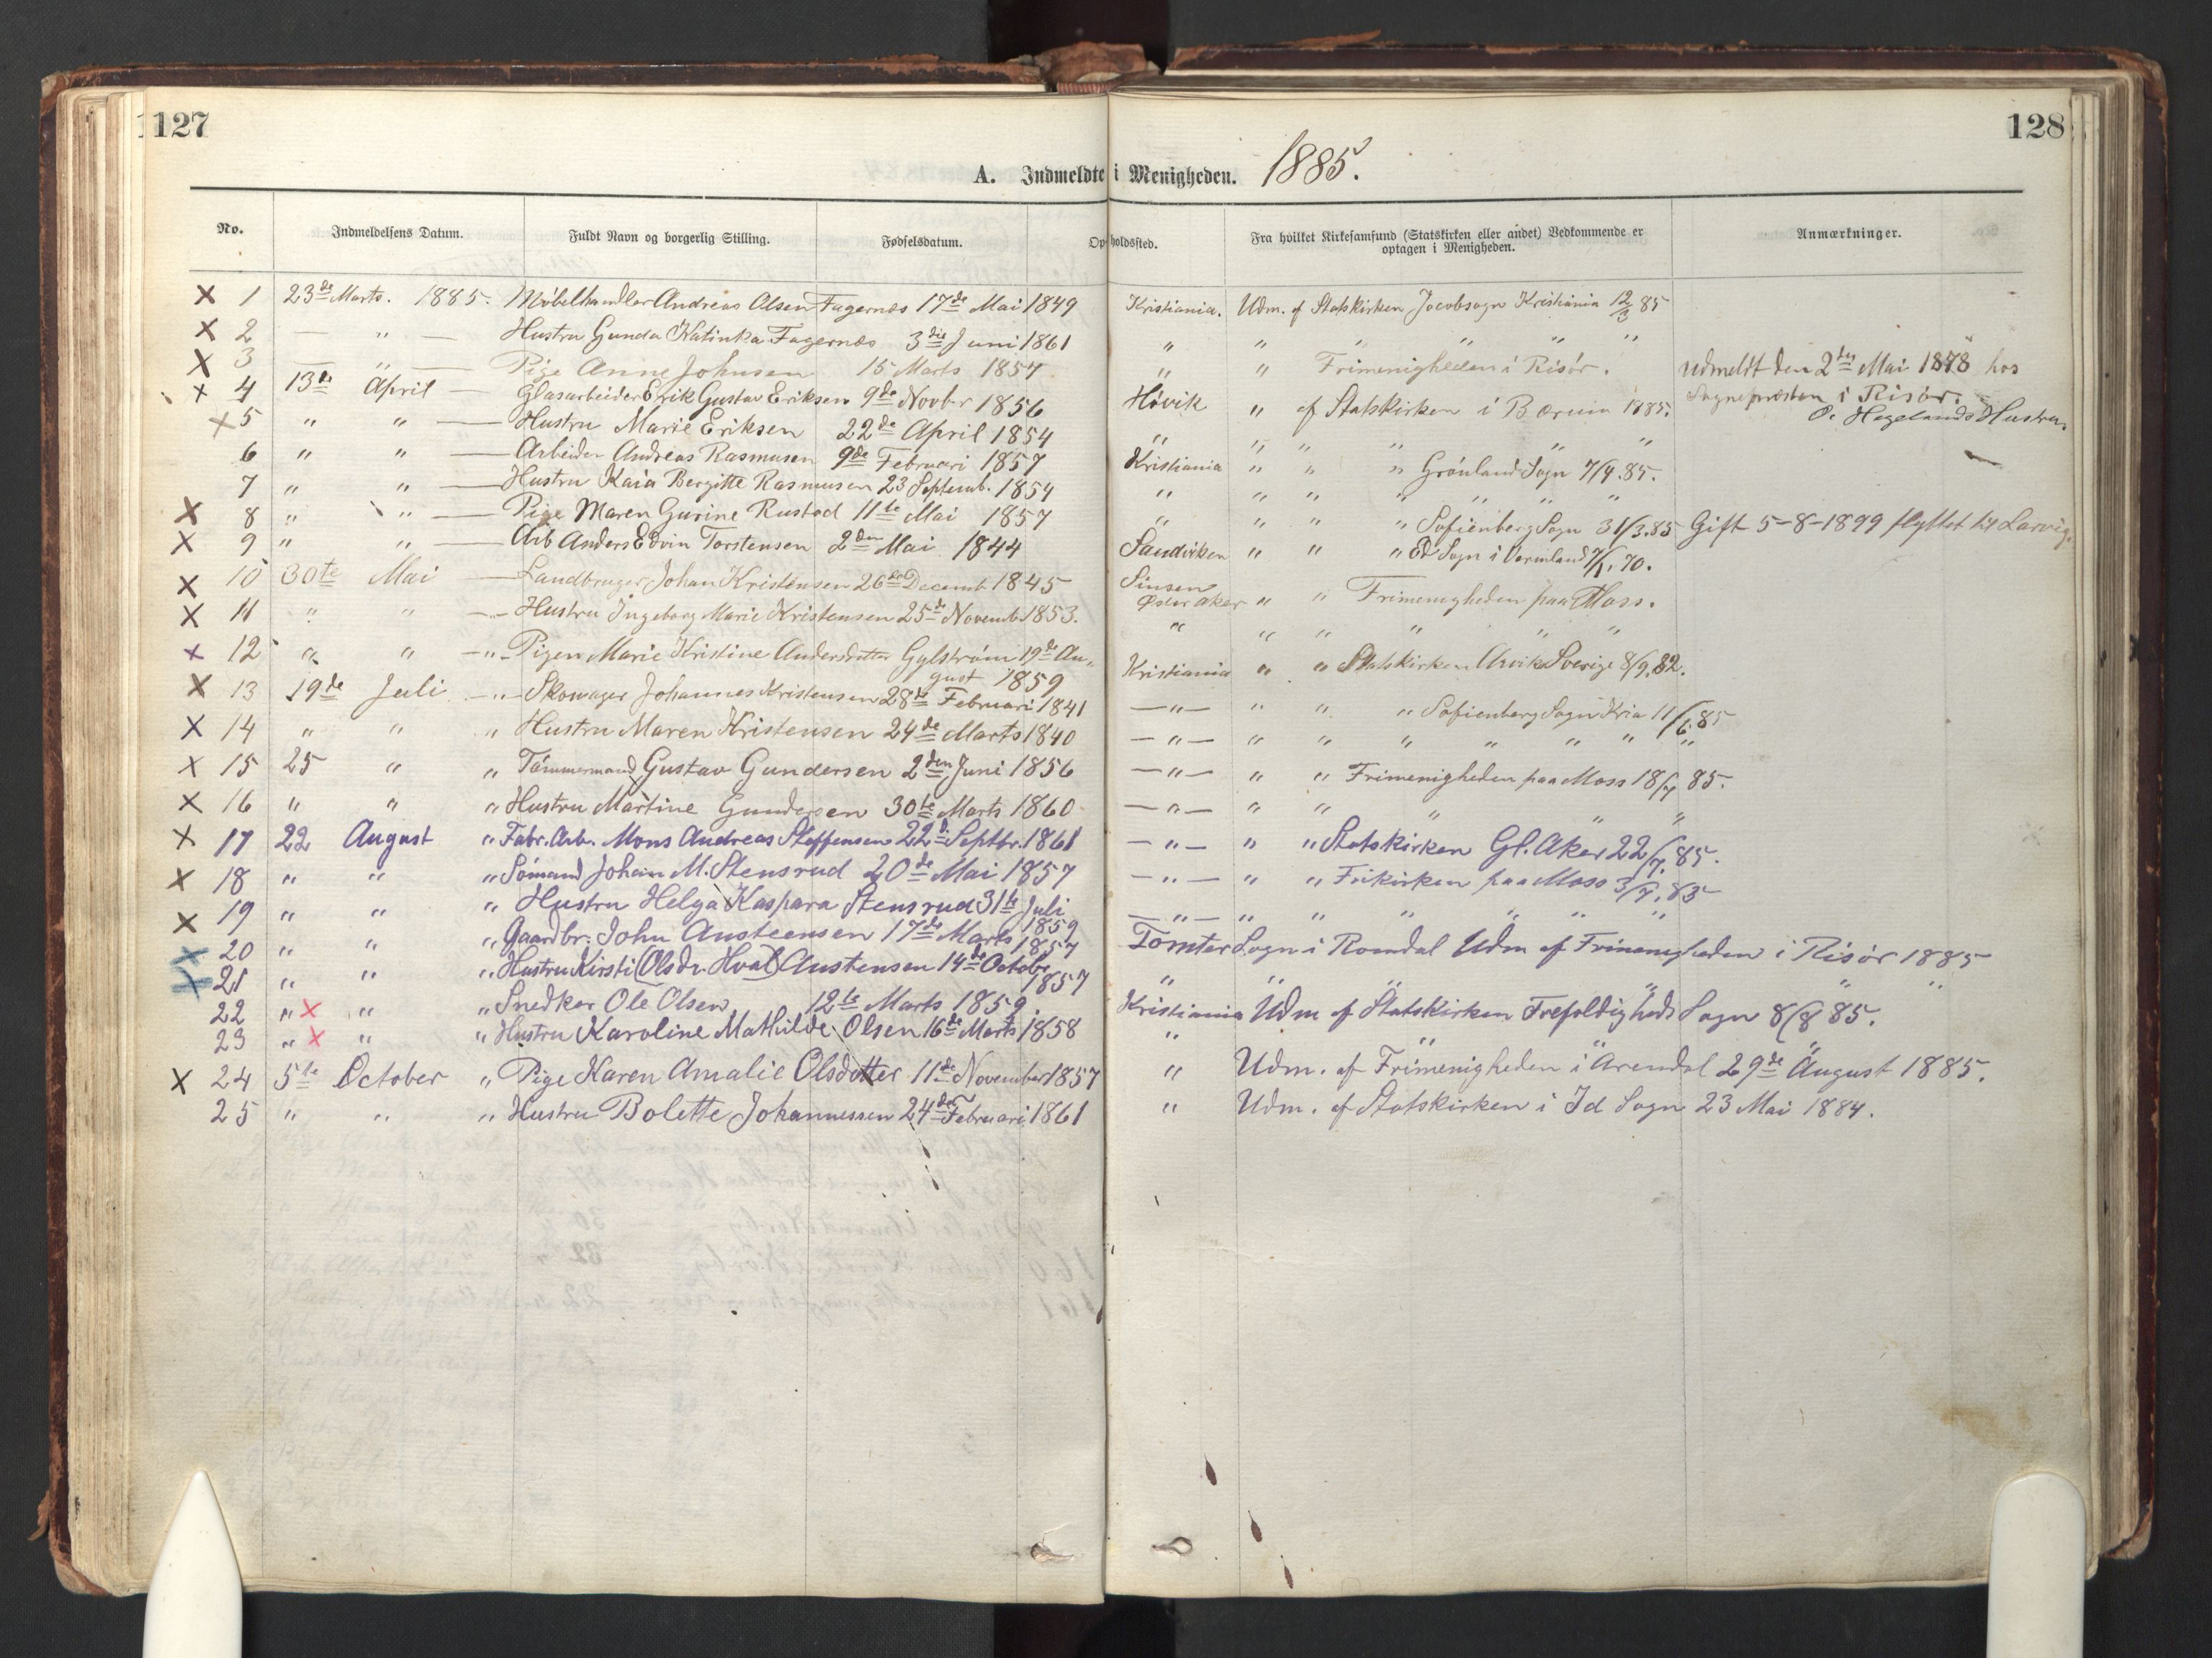 127
128
A. Indmeldte i Menigheden. 1885.
No. Indmeldelsens Datum. Fuldt Navn og borgerlig Stilling. Fødselsdatum. Opholdssted. Fra hvilket Kirkesamfund (Statskirken eller andet) Vedkommende er optagen i Menigheden. Anmærkninger.
X 1 23de Marts. 1885. Møbelhandler Andreas Olsen Fagernæs 17de Mai 1849 Kristiania. Udm. af Statskirken Jacobsogn Kristiania 12/3 85
X 2 — " — Hustru Gunda Katinka Fagernæs 3die Juni 1861 " " " " " "
X 3 — " — Pige Anne Johnsen 15 Marts 1857 " " Frimenigheden i Risør. udmeldt den 2den Mai 1878 hos Sognepræsten i Risør.
X 4 13de April — Glasarbeider Erik Gustav Eriksen 9de Novbr 1856 Høvik " af Statskirken i Bærum 1885. O. Hegelands Hustru.
X 5 " " — Hustru Marie Eriksen 22de April 1854 " " " " "
6 " " — Arbeider Andreas Rasmusen 9de Februari 1857 Kristiania " " " Grønland Sogn 7/4.85.
7 " " — Hustru Kaia Bergitte Rasmusen 23 Septemb. 1854 " " " " " " "
X 8 " " — Pige Maren Gurine Rustad 11te Mai 1857 " " " " Sofienberg Sogn 31/3.85 Gift 5-8-1899 flyttet til Larvig.
X 9 " " — Arb Anders Edvin Torstensen 2den Mai 1844 Sandviken " " " Ed Sogn i Vermland 7/1.70.
X 10 30te Mai — Landbruger Johan Kristensen 26de Decemb 1845 Sinsen Øster Aker " " Frimenigheden paa Moss.
X 11 " " — Hustru Ingeborg Marie Kristensen 25de Novemb 1853. " " " " " "
X 12 " " — " — Pigen Marie Kristine Andersdatter Gylstrøm 19de August 1859 Kristiania " " Statskirken Arvika Sverige 8/9.82.
X 13 19de Juli — " — Skomager Johannes Kristensen 28de Februari 1841 — " — " " " Sofienberg Sogn Kria 11/6.85
X 14 " " " Hustru Maren Kristensen 24de Marts 1840 — " — " " " " " " "
X 15 25 " " Tømmermand Gustav Gundersen 2den Juni 1856 — " — " " Frimenigheden paa Moss 18/7 85.
X 16 " " " Hustru Martine Gundersen 30te Marts 1860 — " — " " " " "
X 17 22 August " Fabr. Arb. Mons Andreas Steffensen 22de Septbr. 1861 — " — " " Statskirken Gl. Aker 22/7.85.
X 18 " " " Sømand Johan M. Stensrud 20de Mai 1857 — " — " " Frikirken paa Moss 3/7.83
X 19 " " " Hustru Helga Kaspara Stensrud 31te Juli 1859 — " — " " " " " "
X 20 " " " Gaardbr. John Austeensen 17de Marts 1857 Tomter Sogn i Romdal Udm af Frimenigheden i Risør 1885
X 21 " " " Hustru Kirsti (Olsdr. Hval) Austensen 14de Octobe 1857 " " " " " "
22 " X " " Snedker Ole Olsen 12te Marts 1859. Kristiania Udm af Statskirken Trefoldigheds Sogn 8/8 85.
23 " X " " Hustru Karoline Mathilde Olsen 16de Marts 1858 " " "
X 24 5te October " Pige Karen Amalie Olsdatter 11de November 1857 " Udm. af Frimenigheden i Arendal 29de August 1885.
25 " " " Hustru Bolette Johannessen 24de Februari 1861 " Udm. af Statskirken i Id Sogn 23 Mai 1884.